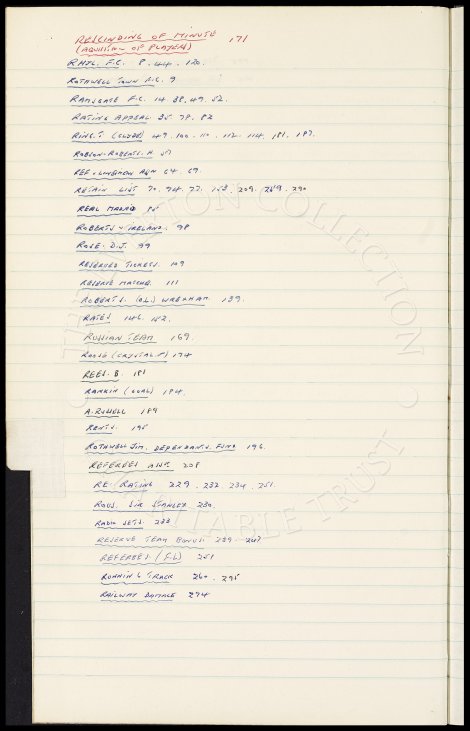 RESCINDING OF MINUTE 171
(AQUISITION OF PLAYERS)
RHYL. F.C. 8. 44. 120.
ROTHWELL TOWN F.C. 9
RAMSGATE F.C. 14. 38. 49. 52.
RATING APPEAL 35. 78. 82
RING. T (CLYDE) 49. 100. 110. 112. 114. 181. 187.
ROBSON-ROBERTS. H. 57
REF & LINESMEN ASSN 64. 69.
RETAIN LIST 70. 74. 77. 153. 209. 259. 290
REAL MADRID 85
ROBERTS v IRELAND. 98
ROSE. D.J. 99
RESERVED TICKETS. 109
RESERVE MATCHES. 111
ROBERTS. (O.L.) WREXHAM. 139.
RATES 146. 152.
RUSSIAN TEAM 169.
ROUSE (CRYSTAL P) 174
REES. B. 181
RANKIN (GOAL) 184.
A. RUSSELL 189
RENTS. 195
ROTHWELL JIM. DEPENDANTS. FUND 196.
REFEREES ASSN 208
RE-RATING 229. 232. 234. 251.
ROUS. SIR STANLEY 230.
RADIO SETS. 233
RESERVE TEAM BONUS 239. 247
REFEREES. (F.L) 251
RUNNING TRACK 260. 295
RAILWAY DAMAGE 274
THE COLLECTION
CHARITABLE TRUST